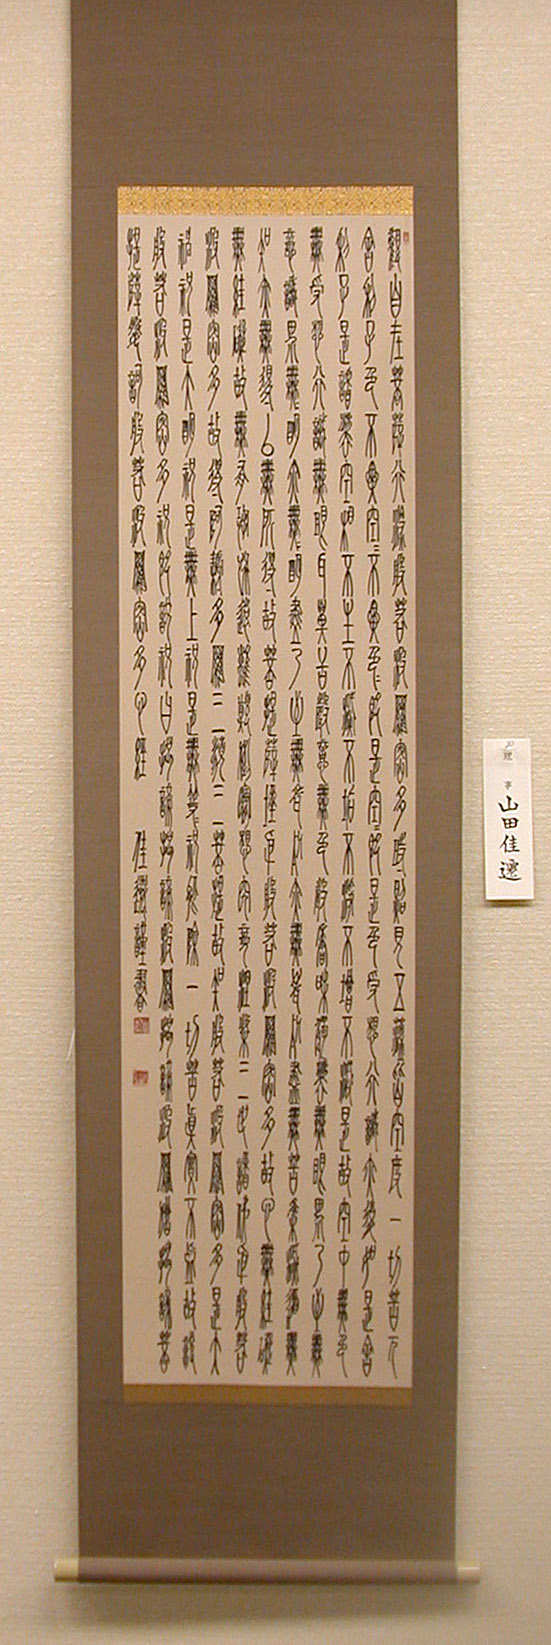 觀自在菩薩行深般若波羅蜜多時照見五蘊皆空度一切苦厄
舍利子色不異空〻不異色〻即是空〻即是色受想行識亦復如是舍
利子是諸法空相不生不滅不垢不淨不增不減是故空中無色
無受想行識無眼耳鼻舌身意無色聲香味觸法無眼界乃至無
意識界無〻明亦無〻明盡乃至無老死亦無老死盡無苦集滅道無
智亦無得以無所得故菩提薩埵依般若波羅蜜多故心無罣礙
無罣礙故無有恐怖遠離顛倒夢想究竟涅槃三世諸佛依般若
波羅蜜多故得阿耨多羅三藐三菩提故知般若波羅蜜多是大
神呪是大明呪是無上呪是無等〻呪能除一切苦真實不虛故說
般若波羅蜜多呪即說呪曰揭諦揭諦波羅揭諦波羅僧揭諦菩
提薩婆訶般若波羅蜜多心經 佳 謹書
理事
山田佳